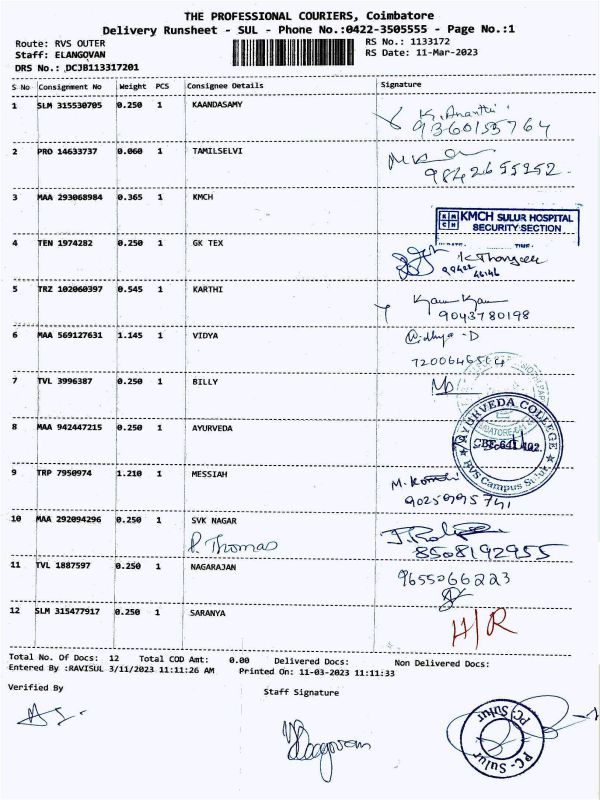 THE PROFESSIONAL COURIERS, Coimbatore
Delivery Runsheet - SUL - Phone No.:0422-3505555 - Page No.:1
Route: RVS OUTER
RS No.: 1133172
Staff: ELANGOVAN
RS Date: 11-Mar-2023
DRS No.: DCJB113317201
S No Consignment No Weight PCS Consignee Details Signature
1 SLM 315530705 0.250 1 KAANDASAMY
K. Ananthi
9360153764
2 PRO 14633737 0.060 1 TAMILSELVI
9842655252
3 MAA 293068984 0.365 1 KMCH
KMCH SULUR HOSPITAL
SECURITY SECTION
DATE: TIME:
4 TEN 1974282 0.250 1 GK TEX
5 TRZ 102060397 0.545 1 KARTHI
9043780198
6 MAA 569127631 1.145 1 VIDYA
Vidhya - D
7200646504
7 TVL 3996387 0.250 1 BILLY
8 MAA 942447215 0.250 1 AYURVEDA
AYURVEDA COLLEGE
CBE-641 402.
RVS Campus Sulur
9 TRP 7950974 1.210 1 MESSIAH
10 MAA 292094296 0.250 1 SVK NAGAR
P. Thomas
8508192955
11 TVL 1887597 0.250 1 NAGARAJAN
9655066223
12 SLM 315477917 0.250 1 SARANYA
H/R
Total No. Of Docs: 12 Total COD Amt: 0.00 Delivered Docs: Non Delivered Docs:
Entered By :RAVISUL 3/11/2023 11:11:26 AM Printed On: 11-03-2023 11:11:33
Verified By
Staff Signature
Elangovan
PC-Sulur
PC-Sulur